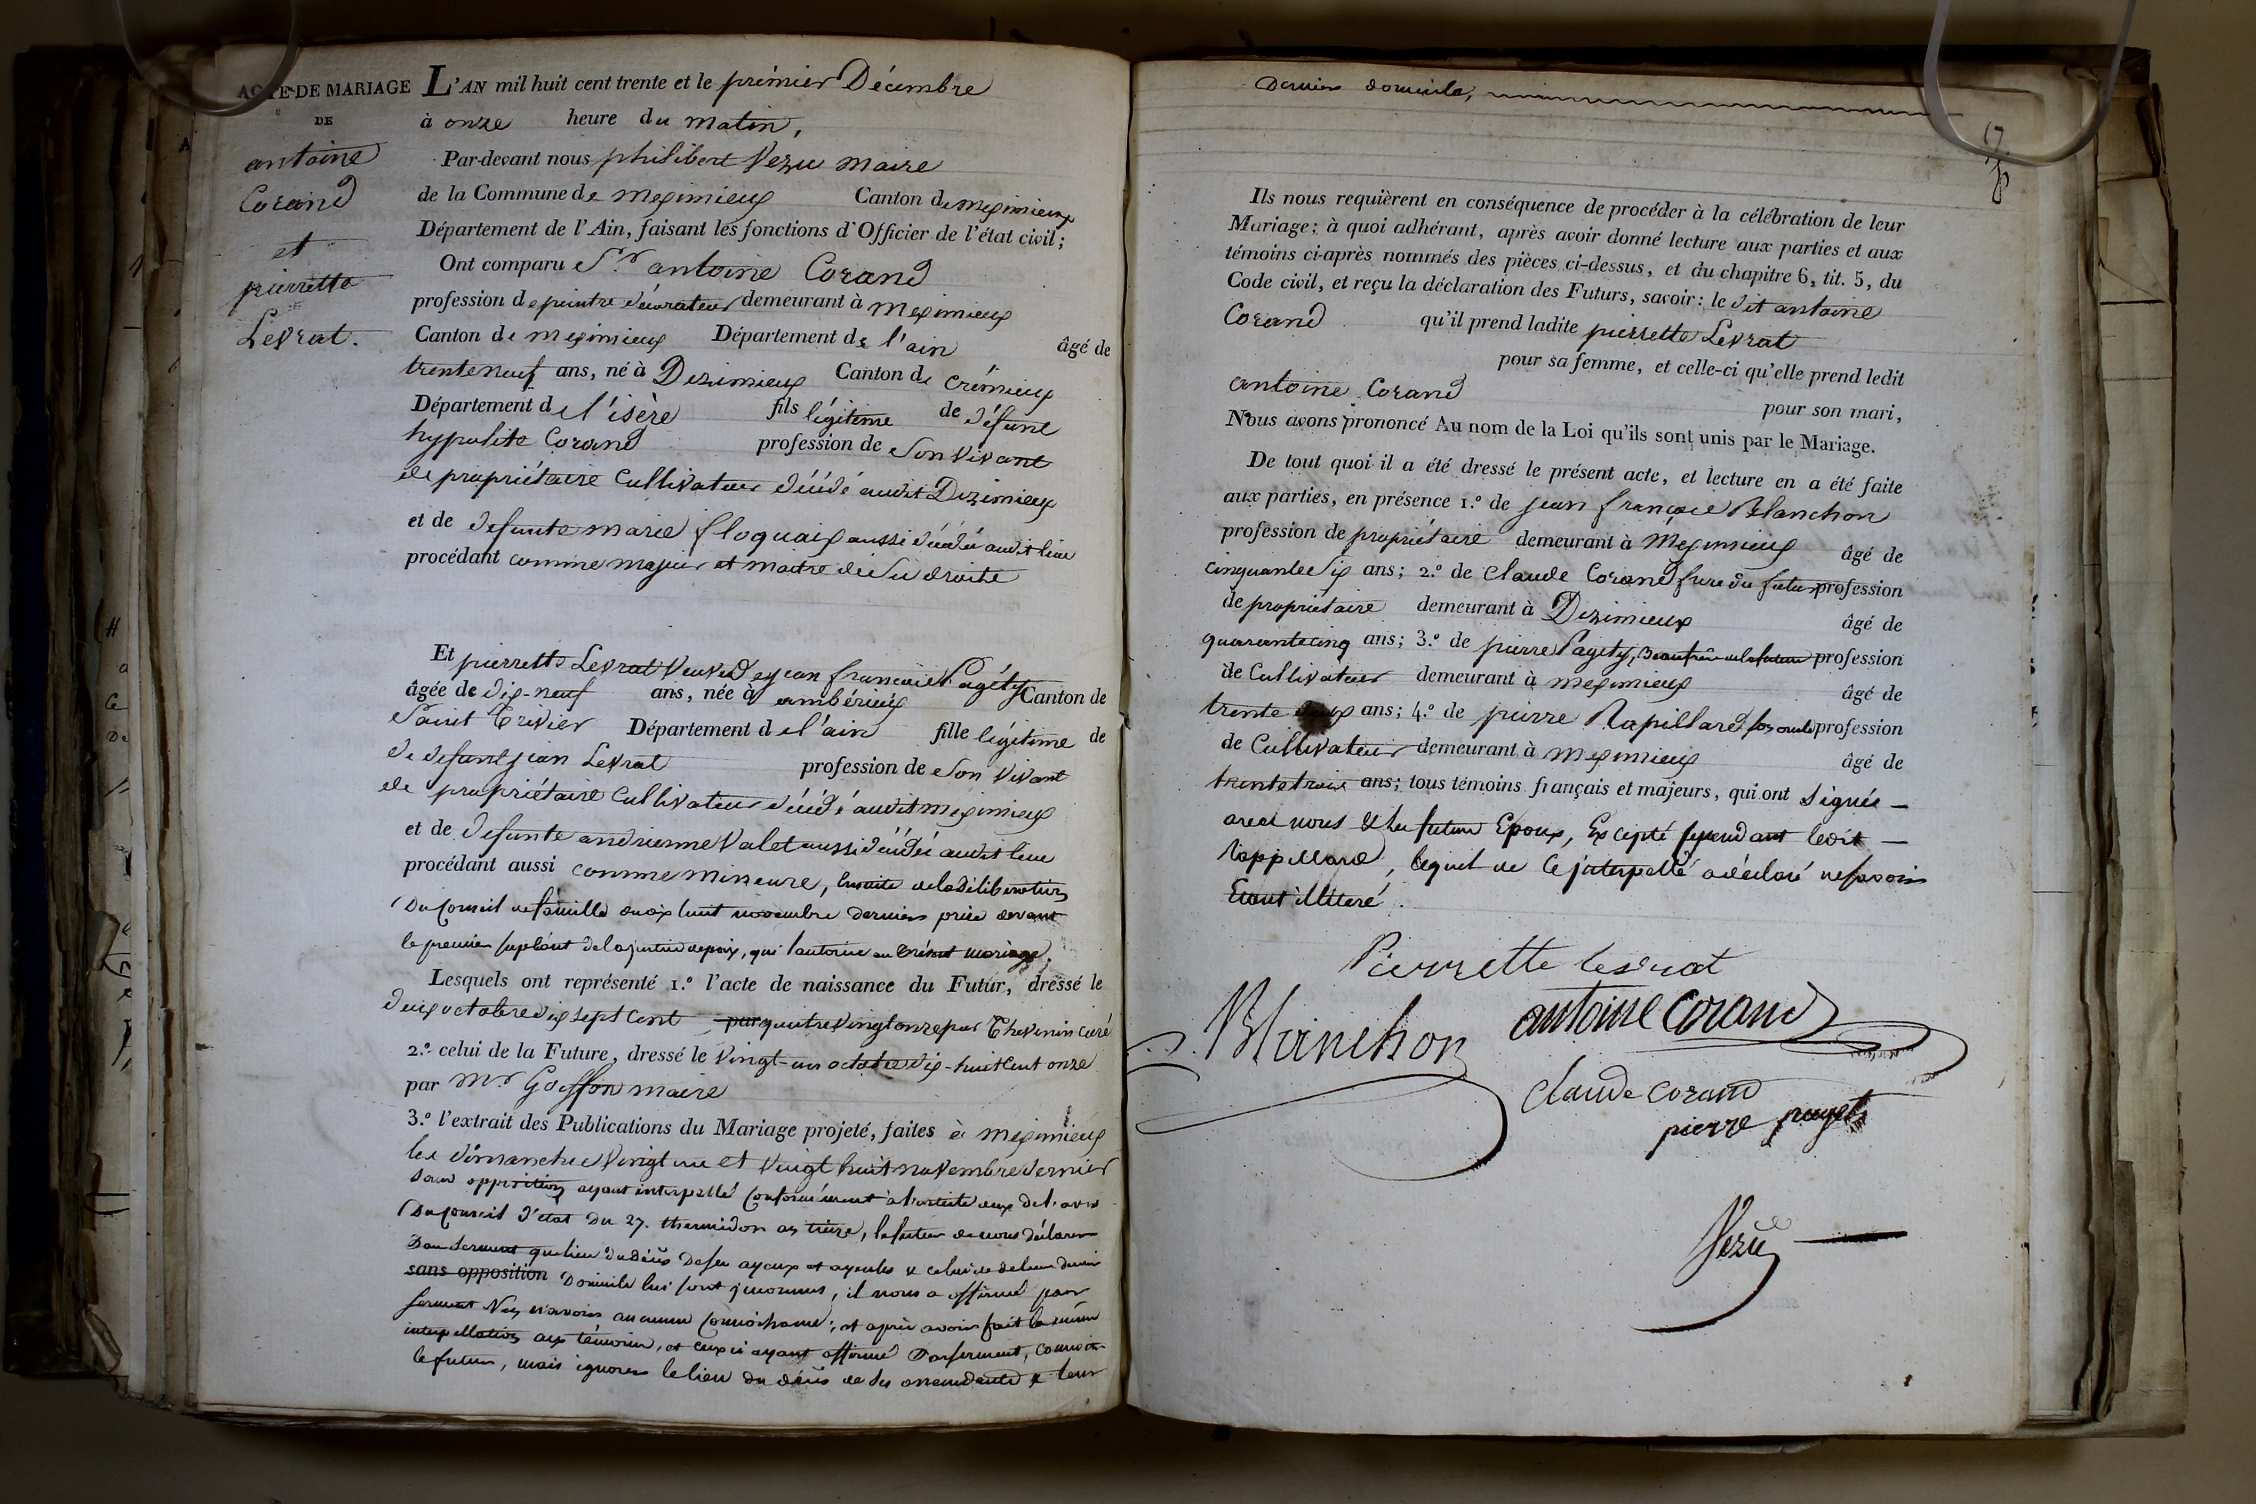 ACTE DE MARIAGE
DE
antoine
Corand
et
pierrette
Levrat.
L'AN mil huit cent trente et le prémier Décembre
à onze heure du matin,
Par-devant nous philibert Vezu maire
de la Commune de meximieux Canton de meximieux
Département de l'Ain, faisant les fonctions d'Officier de l'état civil;
Ont comparu Sr. antoine Corand
profession de peintre décorateur demeurant à meximieux
Canton de meximieux Département de l'ain âgé de
trente neuf ans, né à Dizimieux Canton de crémieux
Département de l'isère fils légitime de défunt
hypolite Corand profession de Son vivant
de propriétaire Cultivateur décédé audit Dizimieux
et de defunte marie floquaix aussi décédée audit lieu
procédant comme majeur et maitre de ses droits
Et pierrette Levrat Veuve de jean francois Pagéty
âgée de dix-neuf ans, née à ambérieux Canton de
Saint Trivier Département de l'ain fille légitime de
de defunt jean Levrat profession de Son vivant
de propriétaire Cultivateur décédé audit meximieux
et de defunte andrienne Valet aussi décédée audit lieu
procédant aussi comme mineure, Ensuite de la déliberation
Du Conseil de famille du dix huit novembre dernier prise devant
le premier supléant de la justice de paix, qui l'autorise au présent mariage.
Lesquels ont représenté 1.º l'acte de naissance du Futur, dressé le
deux octobre dix sept cent par quatre vingt onze par Thevenin curé
2.º celui de la Future, dressé le vingt-un octobre dix-huit cent onze
par Mr. Goiffon maire
3.º l'extrait des Publications du Mariage projeté, faites à meximieux
les dimanches vingt un et vingt huit novembre dernier
Sans opposition ayant interpellé Conformément à l'article deux de l'avis
Du Conseil d'état du 27. thermidor an treize, le futur de nous déclarer
Sous serment que lieu du décès de ses ayeux et ayeules & celui de de leur dernier
sans opposition Domicile lui sont inconnus, il nous a affirmé par
serment N'en n'avoir aucunne Connoissance; et après avoir fait la même
interpellation aux témoins, et ceux ci ayant affirmé Par serment, Connoitre
le futur, mais ignorer le lieu du décès de ses ascendants & leur
Dernier domicile,
Ils nous requièrent en conséquence de procéder à la célébration de leur
Mariage; à quoi adhérant, après avoir donné lecture aux parties et aux
témoins ci-après nommés des pièces ci-dessus, et du chapitre 6, tit. 5, du
Code civil, et reçu la déclaration des Futurs, savoir: le dit antoine
Corand qu'il prend ladite pierrette Levrat
pour sa femme, et celle-ci qu'elle prend ledit
antoine Corand pour son mari,
Nous avons prononcé Au nom de la Loi qu'ils sont unis par le Mariage.
De tout quoi il a été dressé le présent acte, et lecture en a été faite
aux parties, en présence 1.º de jean françois Blanchon
profession de propriétaire demeurant à Meximieux âgé de
cinquante six ans; 2.º de Claude Corand frere du futur profession
de propriétaire demeurant à Dizimieux âgé de
quarante cinq ans; 3.º de pierre Pagéty, Beaufrère de la future profession
de Cultivateur demeurant à meximieux âgé de
trente ans; 4.º de pierre Rapillard profession
de Cultivateur demeurant à meximieux âgé de
trente trois ans; tous témoins français et majeurs, qui ont signés
avec nous & les futurs Epoux, Excepté cependant ledit
rappillard, lequel de Ce interpellé a déclaré ne savoir
Etant illiteré.
Pierrette levrat
Blanchon
antoine corand
claude corand
pierre pagety
Vezu